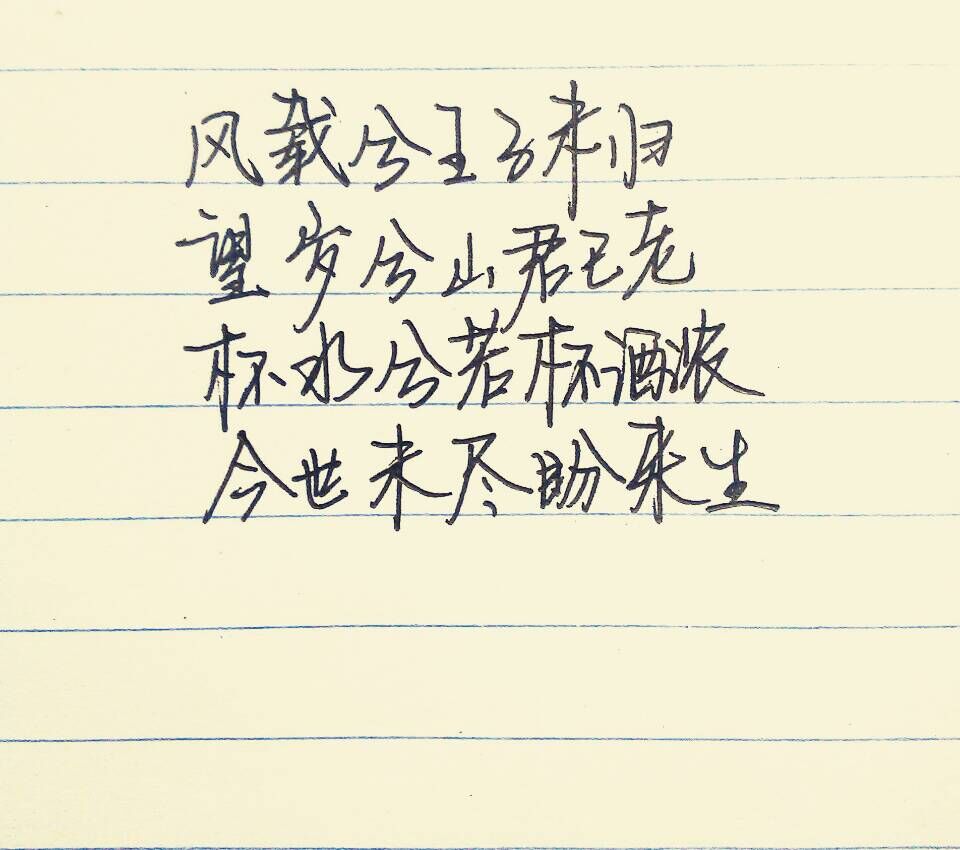 风载兮王子未归
望岁兮山君已老
杯水兮若杯酒浓
今世未尽盼来生